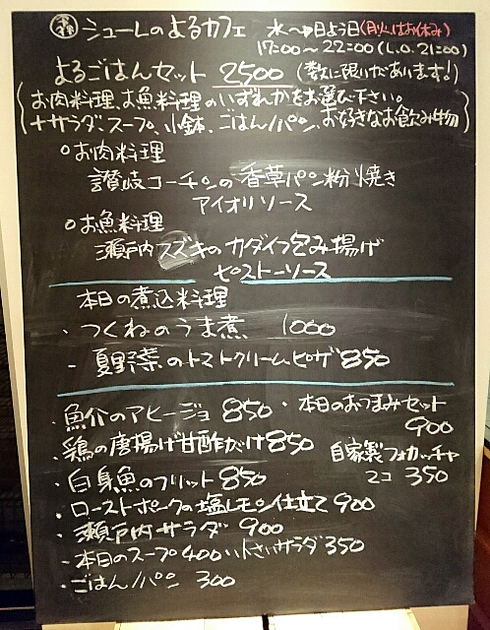 シューレのよるカフェ 水〜日よう日(月火はお休み)
17:00〜22:00(L.O.21:00)
よるごはんセット 2500(数に限りがあります!)
お肉料理、お魚料理のいずれかをお選び下さい。
+サラダ、スープ、小鉢、ごはん/パン、お好きなお飲み物
○お肉料理
讃岐コーチンの香草パン粉焼き
アイオリソース
○お魚料理
瀬戸内スズキのカダイフ包み揚げ
ピストーソース
本日の煮込料理
・つくねのうま煮 1000
- 夏野菜のトマトクリームピザ 850
・魚介のアヒージョ 850
・本日のおつまみセット
900
・鶏の唐揚げ甘酢がけ 850
自家製フォカッチャ
2コ 350
・白身魚のフリット 850
・ローストポークの塩レモン仕立て 900
・瀬戸内サラダ 900
・本日のスープ 400 小さいサラダ 350
・ごはん/パン 300